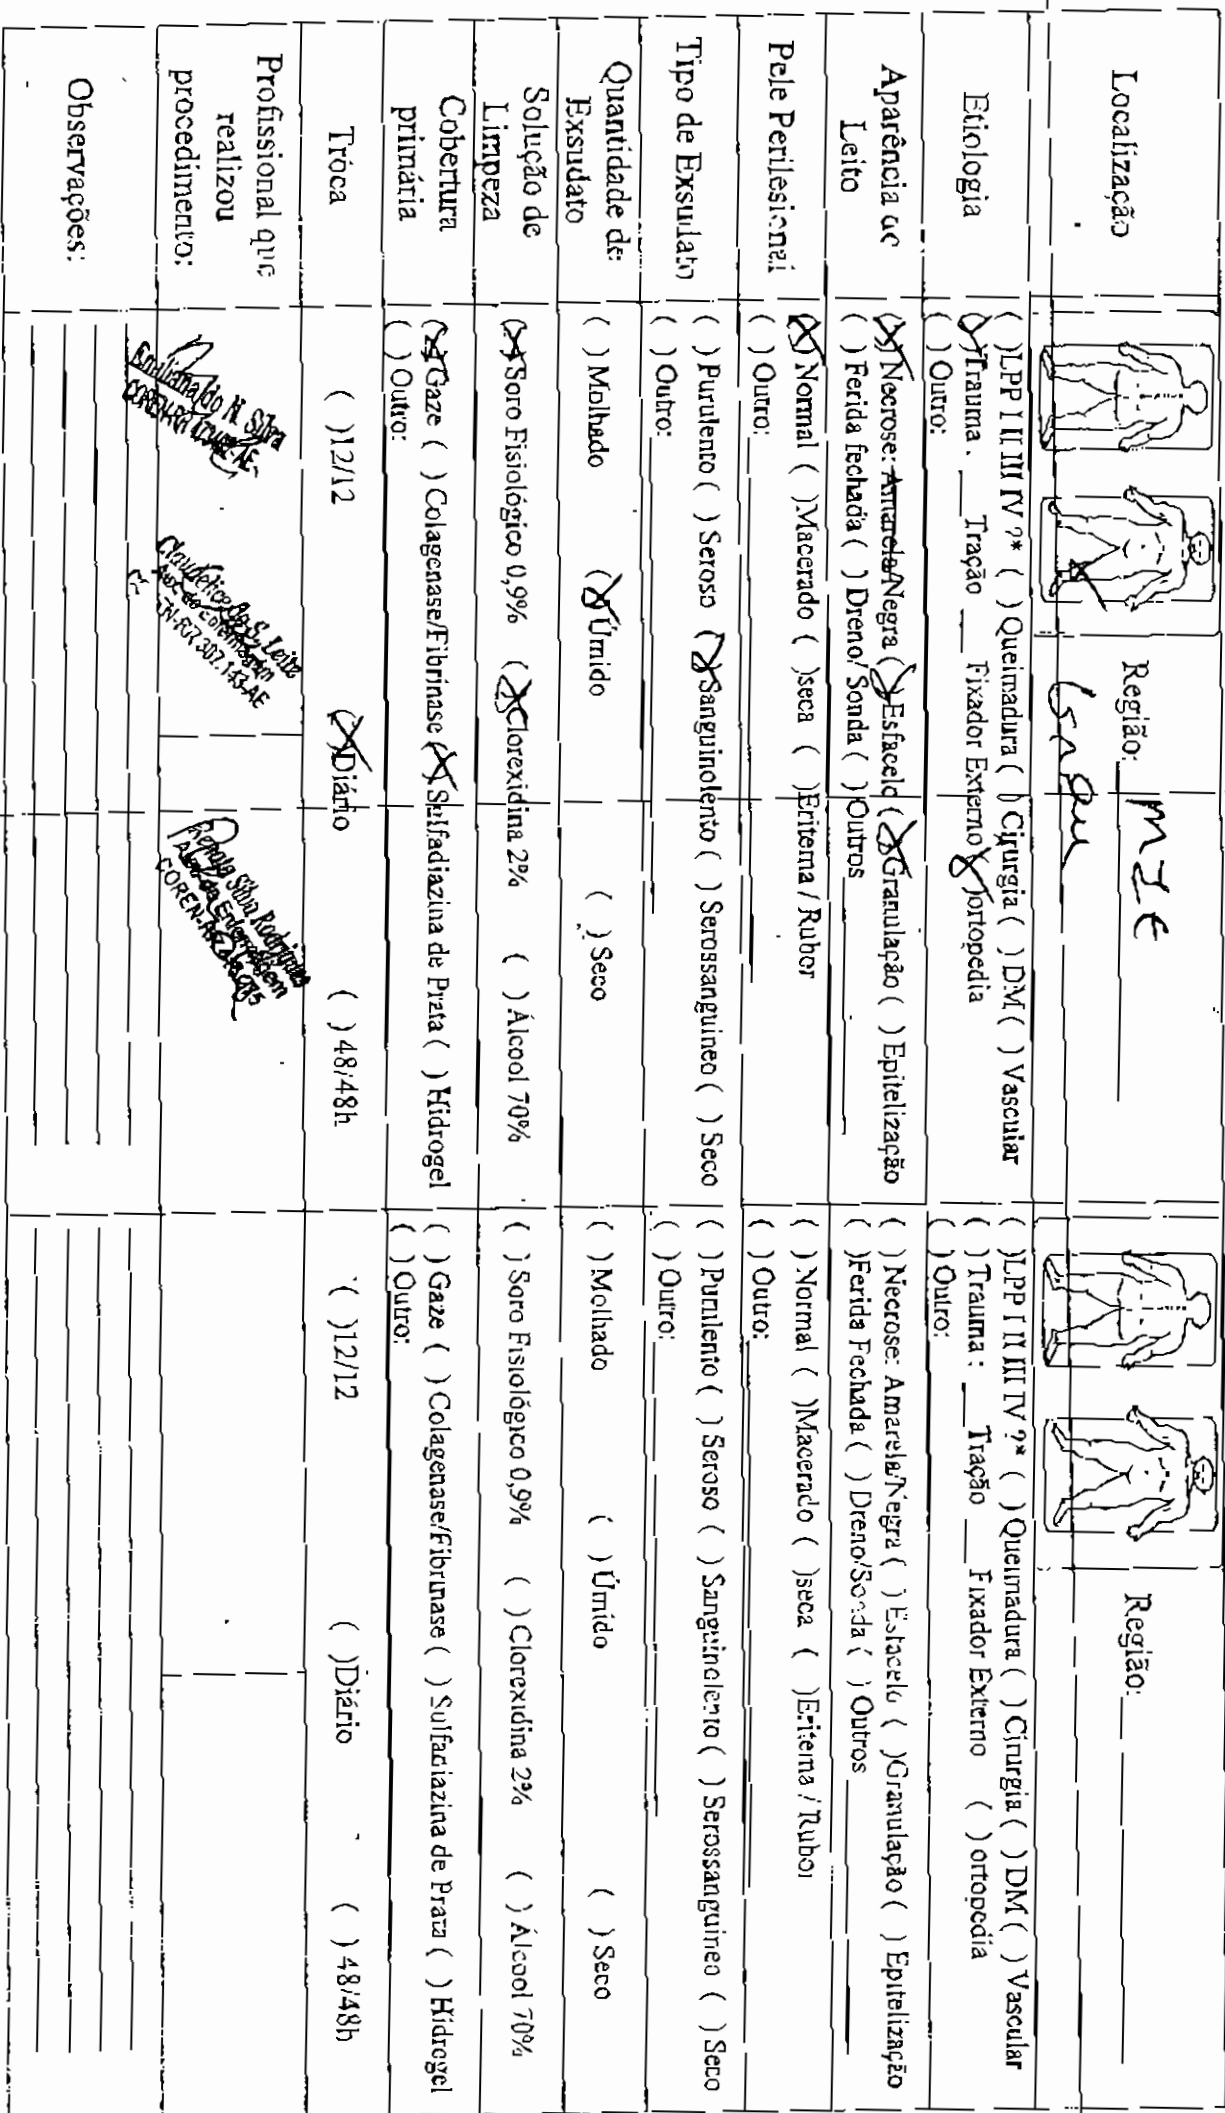 Localização
Região: MIE
Região:
Etiologia
( )LPP I II III IV ?* ( )Queimadura ( ) Cirurgia ( ) DM ( ) Vascular
(X)Trauma. ___ Tração ___ Fixador Externo (X)ortopedia
( ) Outro:
( )LPP I II III IV ?* ( ) Queimadura ( ) Cirurgia ( ) DM ( ) Vascular
( ) Trauma : ___ Tração ___ Fixador Externo ( ) ortopedia
( ) Outro:
Aparência
Leito
(X) Necrose: Amarela/Negra (X) Esfacelo (X) Granulação ( ) Epitelização
( ) Ferida fechada ( ) Dreno/ Sonda ( ) Outros
( ) Necrose: Amarela/Negra ( ) Esfacelo ( )Granulação ( ) Epitelização
( )Ferida Fechada ( ) Dreno/Sonda ( ) Outros
Pele Perilesional
(X) Normal ( )Macerado ( )seca ( )Eritema / Rubor
( ) Outro:
( ) Normal ( )Macerado ( )seca ( )Eritema / Rubor
( ) Outro:
Tipo de Exsudato
( ) Purulento ( ) Seroso (X)Sanguinolento ( ) Serossanguineo ( ) Seco
( ) Outro:
( ) Purulento ( ) Seroso ( ) Sanguinolento ( ) Serossanguineo ( ) Seco
( ) Outro:
Quantidade de
Exsudato
( ) Molhado (X)Úmido ( ) Seco
( ) Molhado ( ) Úmido ( ) Seco
Solução de
Limpeza
(X)Soro Fisiológico 0,9% (X)Clorexidina 2% ( ) Álcool 70%
( ) Soro Fisiológico 0,9% ( ) Clorexidina 2% ( ) Álcool 70%
Cobertura
primária
(X)Gaze ( ) Colagenase/Fibrinase (X) Sulfadiazina de Prata ( ) Hidrogel
( ) Outro:
( ) Gaze ( ) Colagenase/Fibrinase ( ) Sulfadiazina de Prata ( ) Hidrogel
( ) Outro:
Tróca
( )12/12 (X)Diário ( ) 48/48h
( )12/12 ( )Diário ( ) 48/48h
Profissional que
realizou
procedimento:
N. Silva
S. Leite
307.173-AE
Silva Rodrigues
Observações: